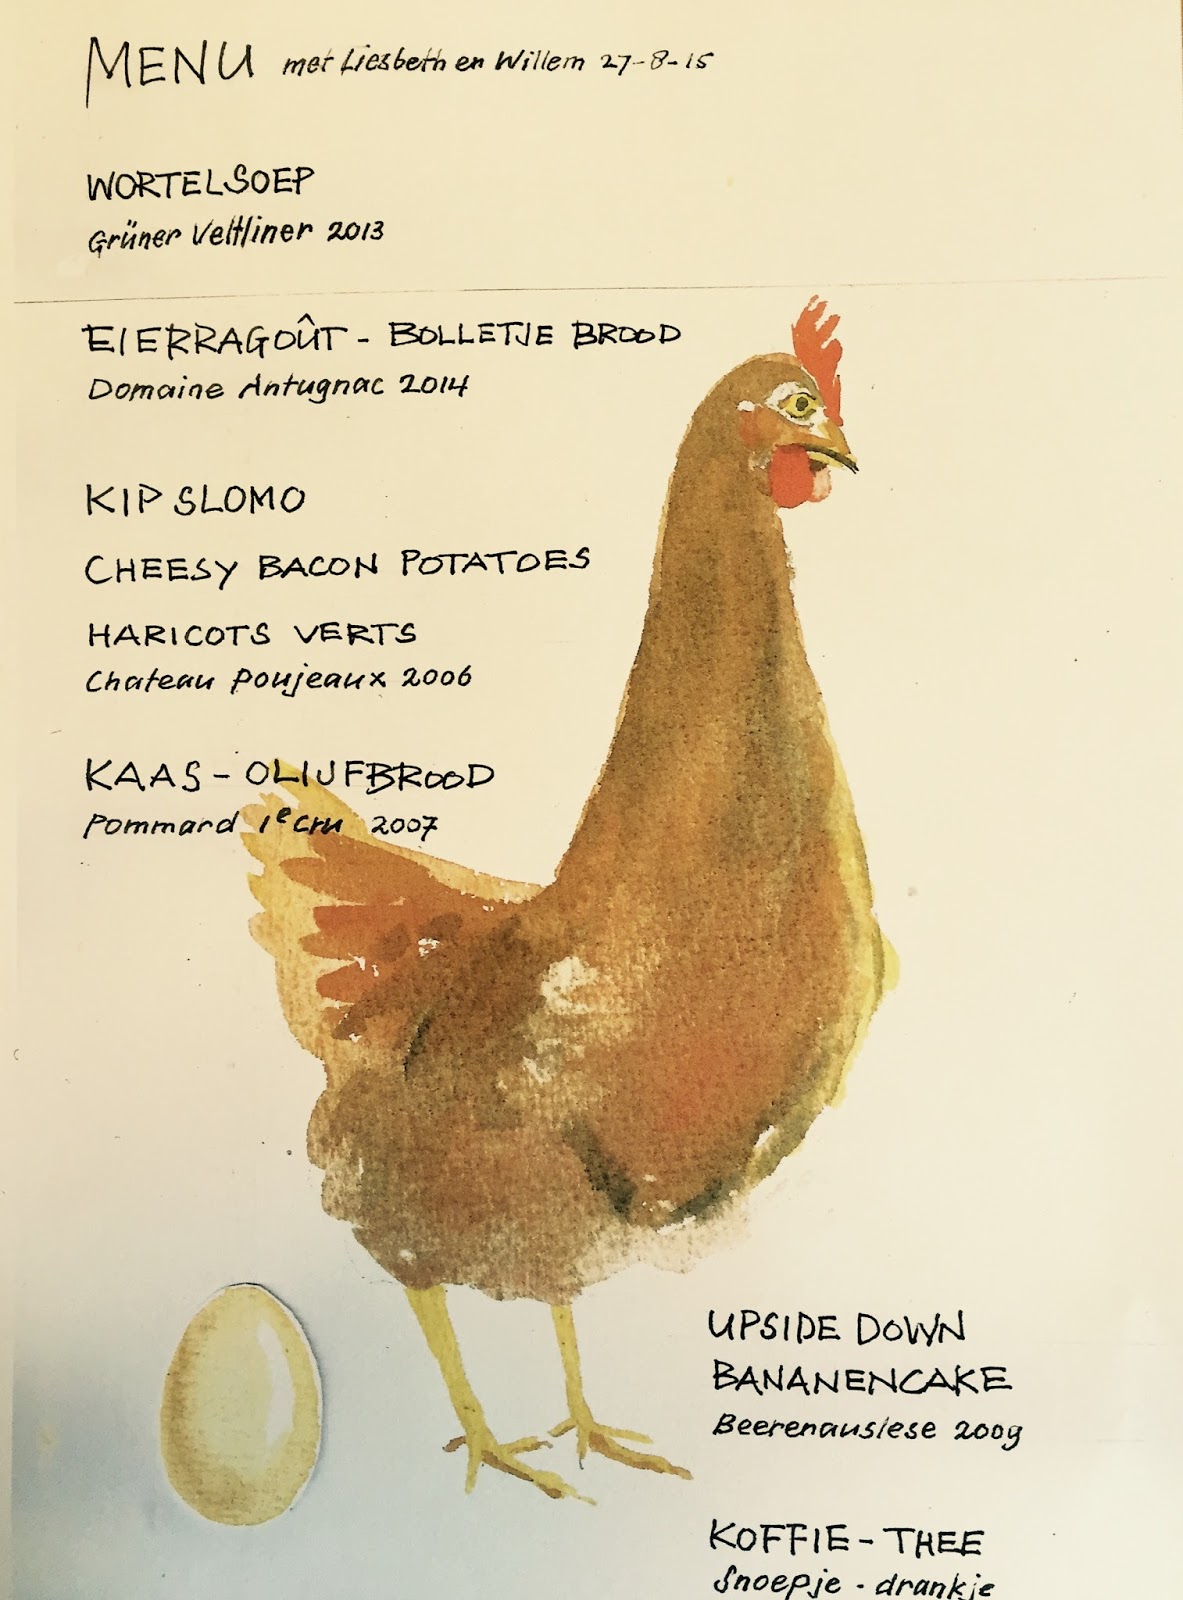 MENU met Liesbeth en Willem 27-8-15
WORTELSOEP
Grüner Veltliner 2013
EIERRAGOÛT - BOLLETJE BROOD
Domaine Antugnac 2014
KIP SLOMO
CHEESY BACON POTATOES
HARICOTS VERTS
Chateau Poujeaux 2006
KAAS - OLIJFBROOD
Pommard 1e cru 2007
UPSIDE DOWN
BANANENCAKE
Beerenauslese 2009
KOFFIE - THEE
Snoepje - drankje